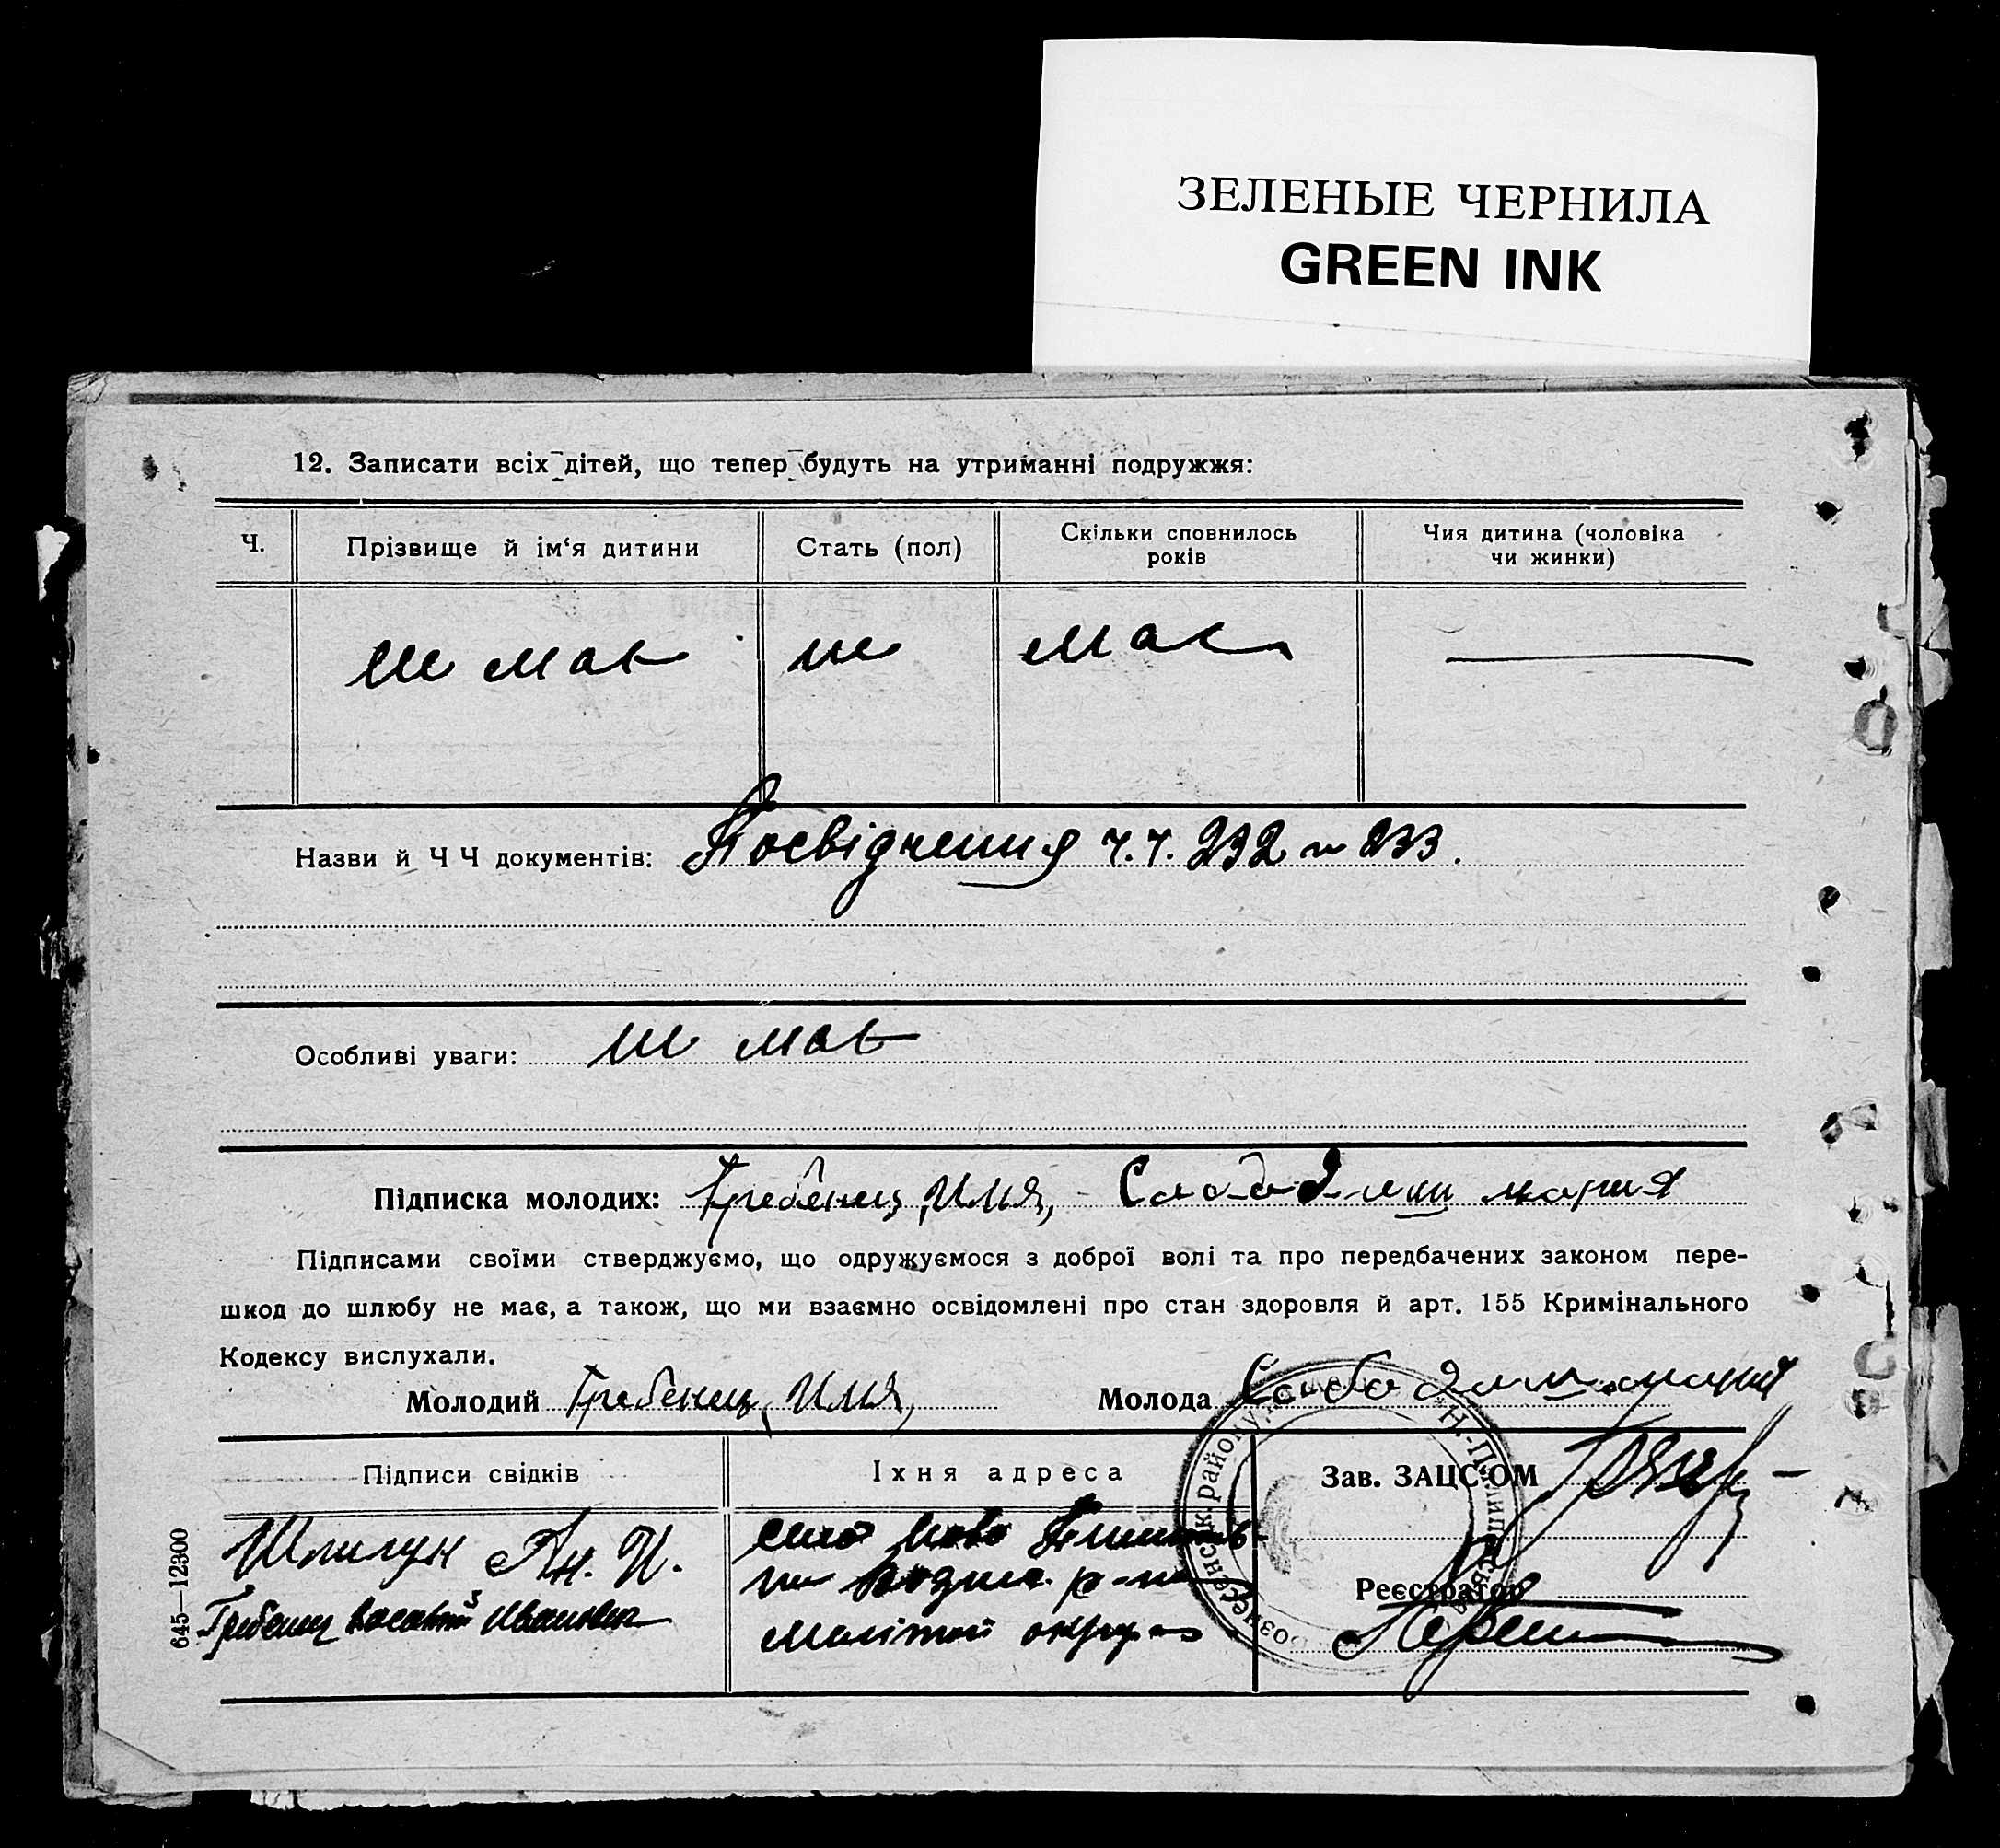 ЗЕЛЕНЫЕ ЧЕРНИЛА
GREEN INK
12. Записати всіх дітей, що тепер будуть на утриманні подружжя:
Ч.
Прізвище й ім‘я дитини
Стать (пол)
Скільки сповнилось
років
Чия дитина (чоловіка
чи жинки)
не має не має
Назви й Ч Ч документів: Посвідчення ч.ч. 232 и 233.
Особливі уваги: не має
Підписка молодих: Гребенец Илия, Мария
Підписами своїми стверджуємо, що одружуємося з доброї волі та про передбачених законом пере-
шкод до шлюбу не має, а також, що ми взаємно освідомлені про стан здоровля й арт. 155 Кримінального
Кодексу вислухали.
Молодий Гребенец Илия, Молода
Підписи свідків
Їхня адреса
Зав. ЗАЦС‘ОМ
Ан. И.
село Ново
р-на
округи
Гребенец Иванович
Реєстратор
645—12300